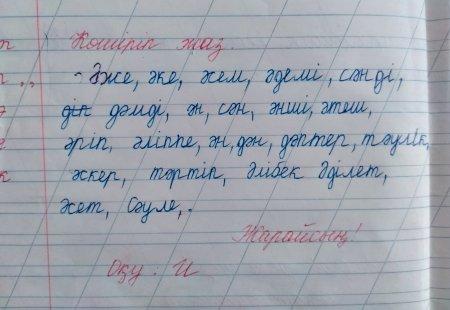 Көшіріп жаз.
- Әже, әке, әкем, әдемі, сәнді,
дәмді, ән, сән, әнші, әтеш,
әріп, әліппе, ән, дән, дәптер, тәулік,
әскер, тәртіп, Әлібек Әділет,
Сәуле,.
Жарайсың!
Оқу. И